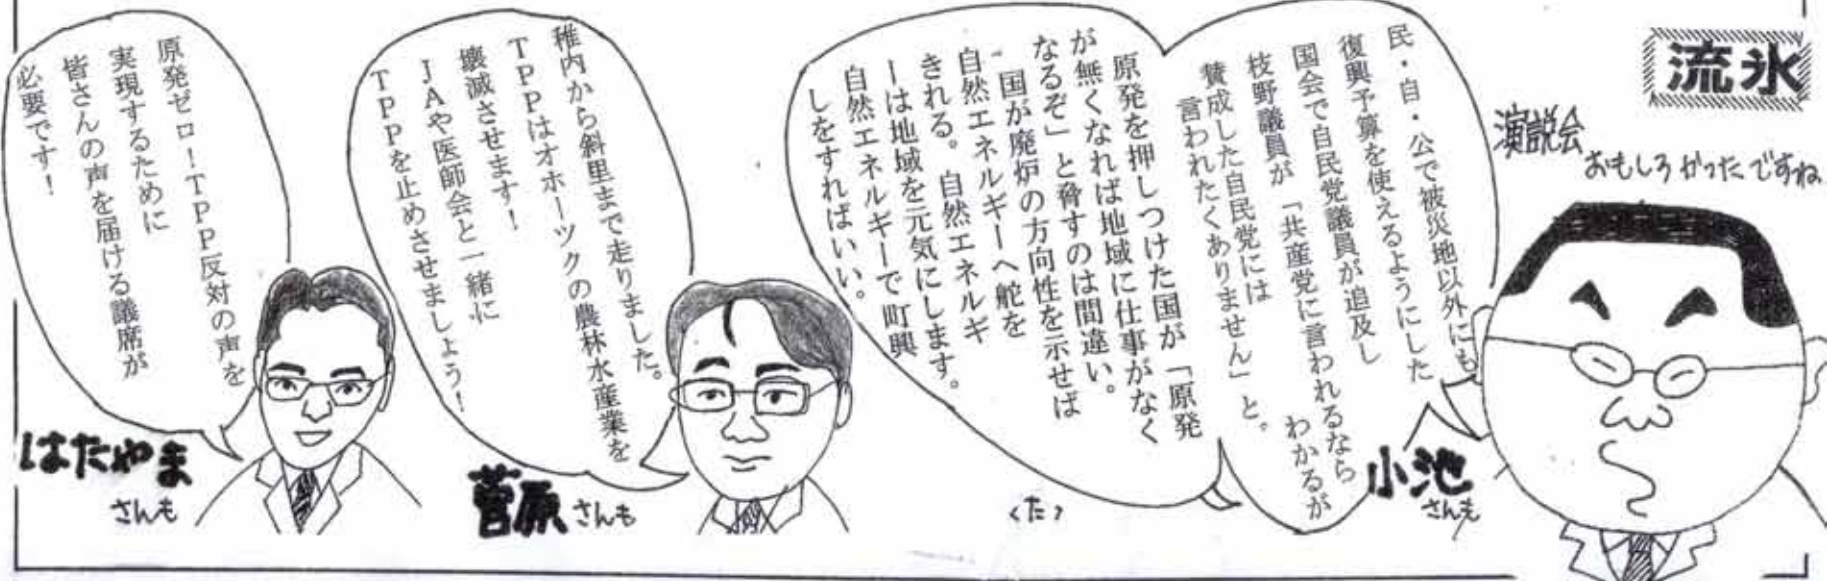 流氷
演説会
おもしろかったですね
民・自・公で被災地以外にも
復興予算を使えるようにした
国会で自民党議員が追及し
枝野議員が「共産党に言われるなら
わかるが
賛成した自民党には
言われたくありません」と。
小池
さんも
原発を押しつけた国が「原発
が無くなれば地域に仕事がなく
なるぞ」と脅すのは間違い。
国が廃炉の方向性を示せば
自然エネルギーへ舵を
きれる。自然エネルギ
ーは地域を元気にします。
自然エネルギーで町興
しをすればいい。
稚内から斜里まで走りました。
TPPはオホーツクの農林水産業を
壊滅させます！
JAや医師会と一緒に
TPPを止めさせましょう！
菅原
さんも
原発ゼロ！TPP反対の声を
実現するために
皆さんの声を届ける議席が
必要です！
はたやま
さんも